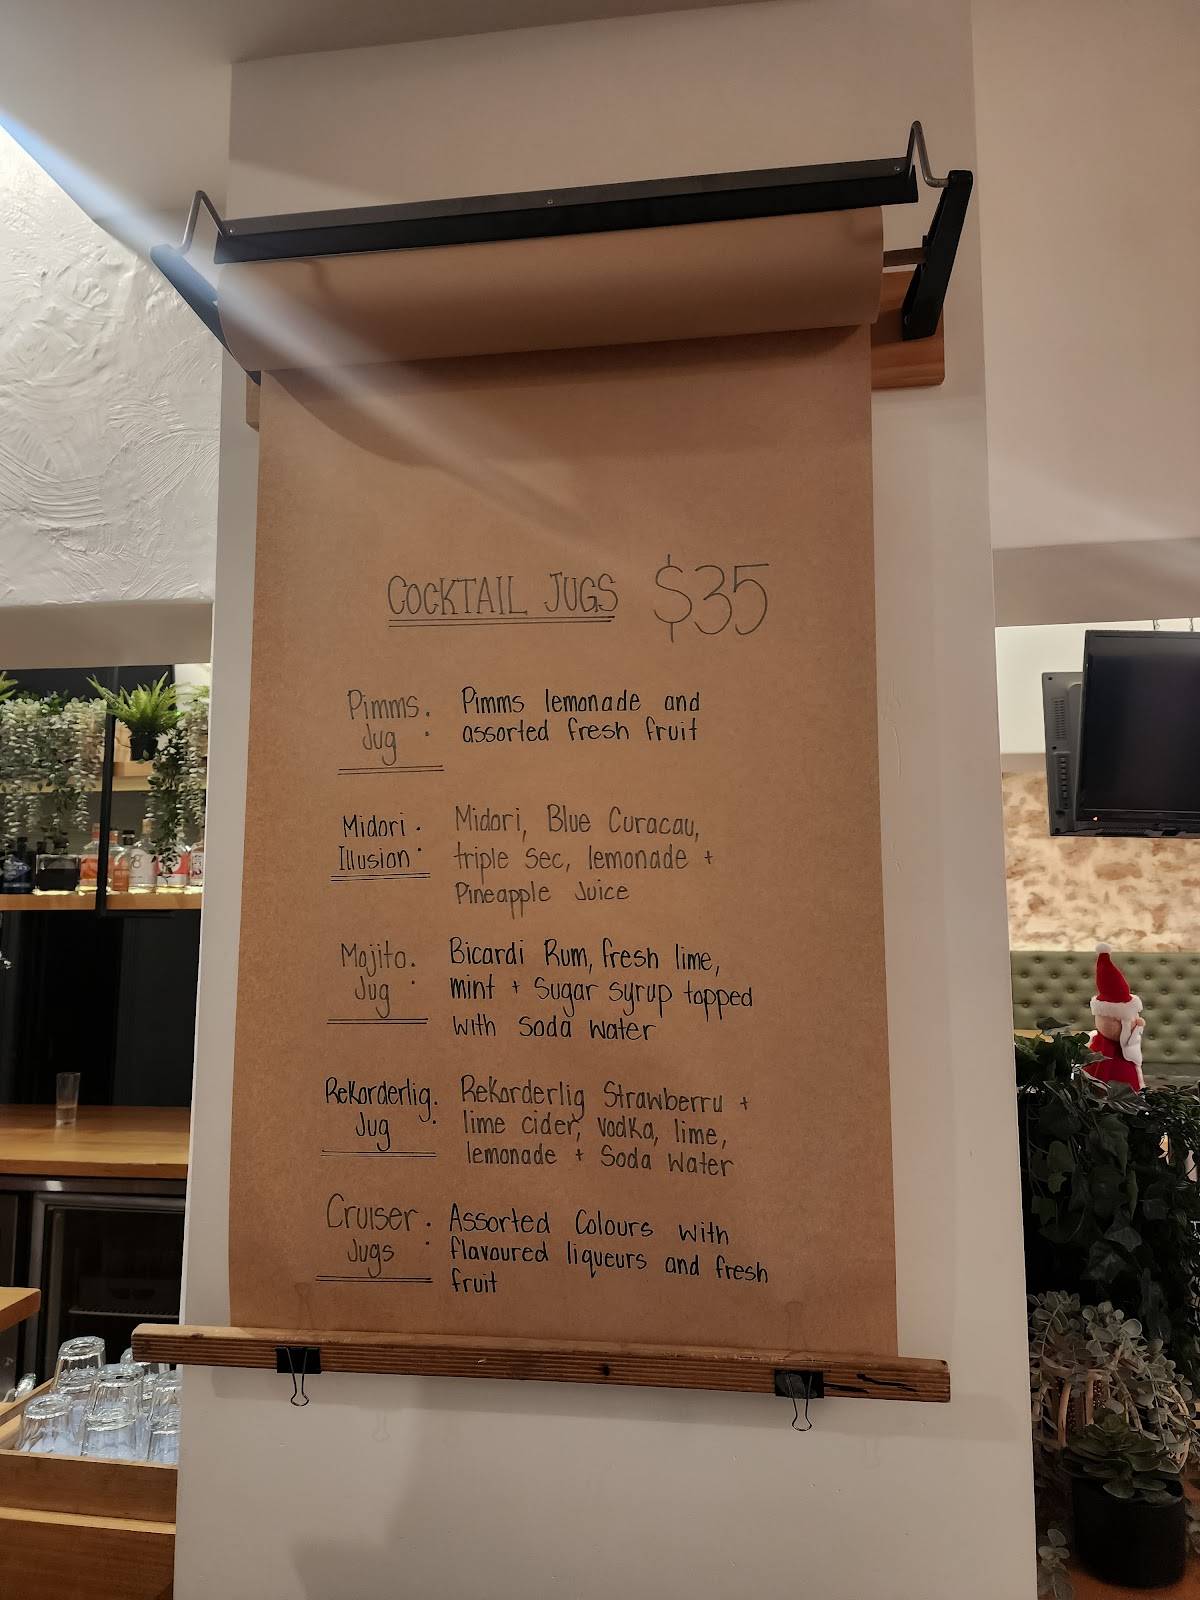 COCKTAIL JUGS $35
Pimms Jug : Pimms lemonade and
assorted fresh fruit
Midori Illusion : Midori, Blue Curacau,
triple Sec, lemonade +
Pineapple Juice
Mojito Jug : Bicardi Rum, fresh lime,
mint + Sugar syrup topped
with Soda water
Rekorderlig Jug : Rekorderlig Strawberru +
lime cider, vodka, lime,
lemonade + Soda Water
Cruiser Jugs : Assorted Colours with
flavoured liqueurs and fresh
fruit